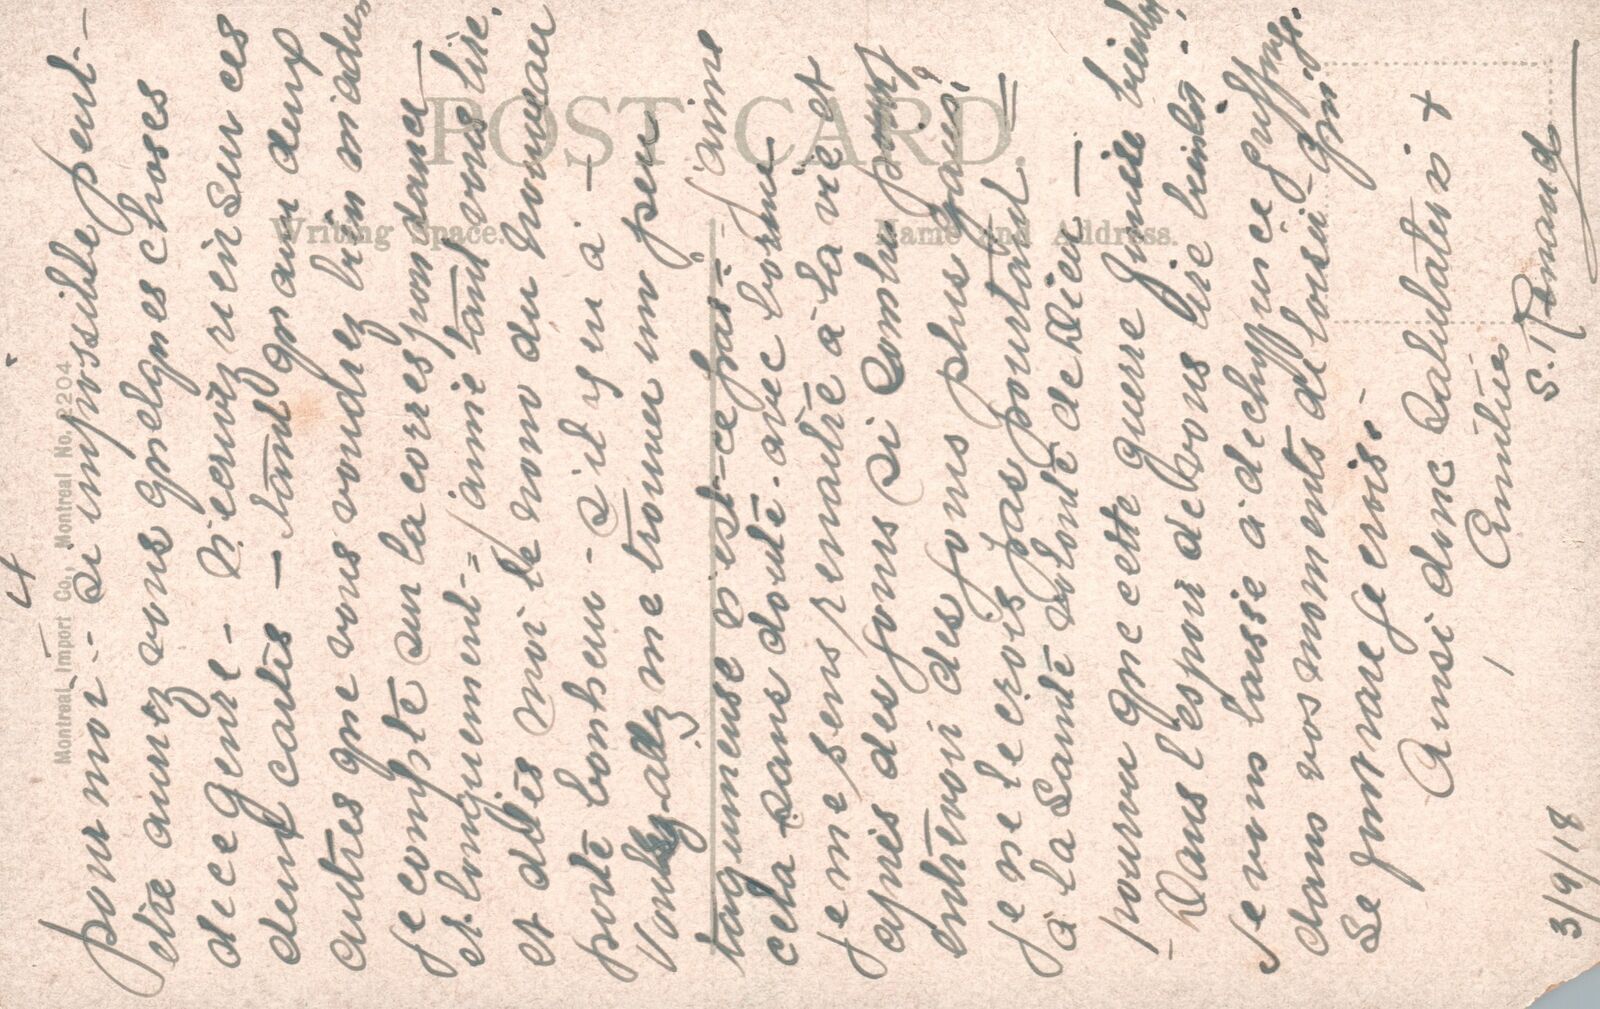 4
pour moi.- si impossible peut-
être aurez vous quelques choses
de ce genre - N'écrivez rien sur ces
deux cartes - tant qu'aux deux
autres que vous voudrez bien m'adres
je compte sur la correspondance
et longuement - j'aime tant vous lire.
et dites moi le nom du nouveau
porte bonheur - s'il y en a -
Vous allez me trouver un peu
taquineuse n'est-ce pas - j'aime
cela sans doute. avec borne
je me sens renaître à la vie et
après des jours si sombre pour
entrevoir des jours plus gais,
je ne le crois pas pourtant.
à la Sainte volonté de Dieu -
pourvu que cette guerre finisse bientôt
- Dans l'espoir de vous lire bientôt.
Je vous laisse à dechyffrer ce griffonage
dans vos moments de loisir - qui
se font rare je crois.-
Ainsi donc Salutations +
Amitiés
S. Renaud
3/9/18
POST CARD.
Writing Space.
Name and Address.
Montreal Import Co., Montreal No. 2204